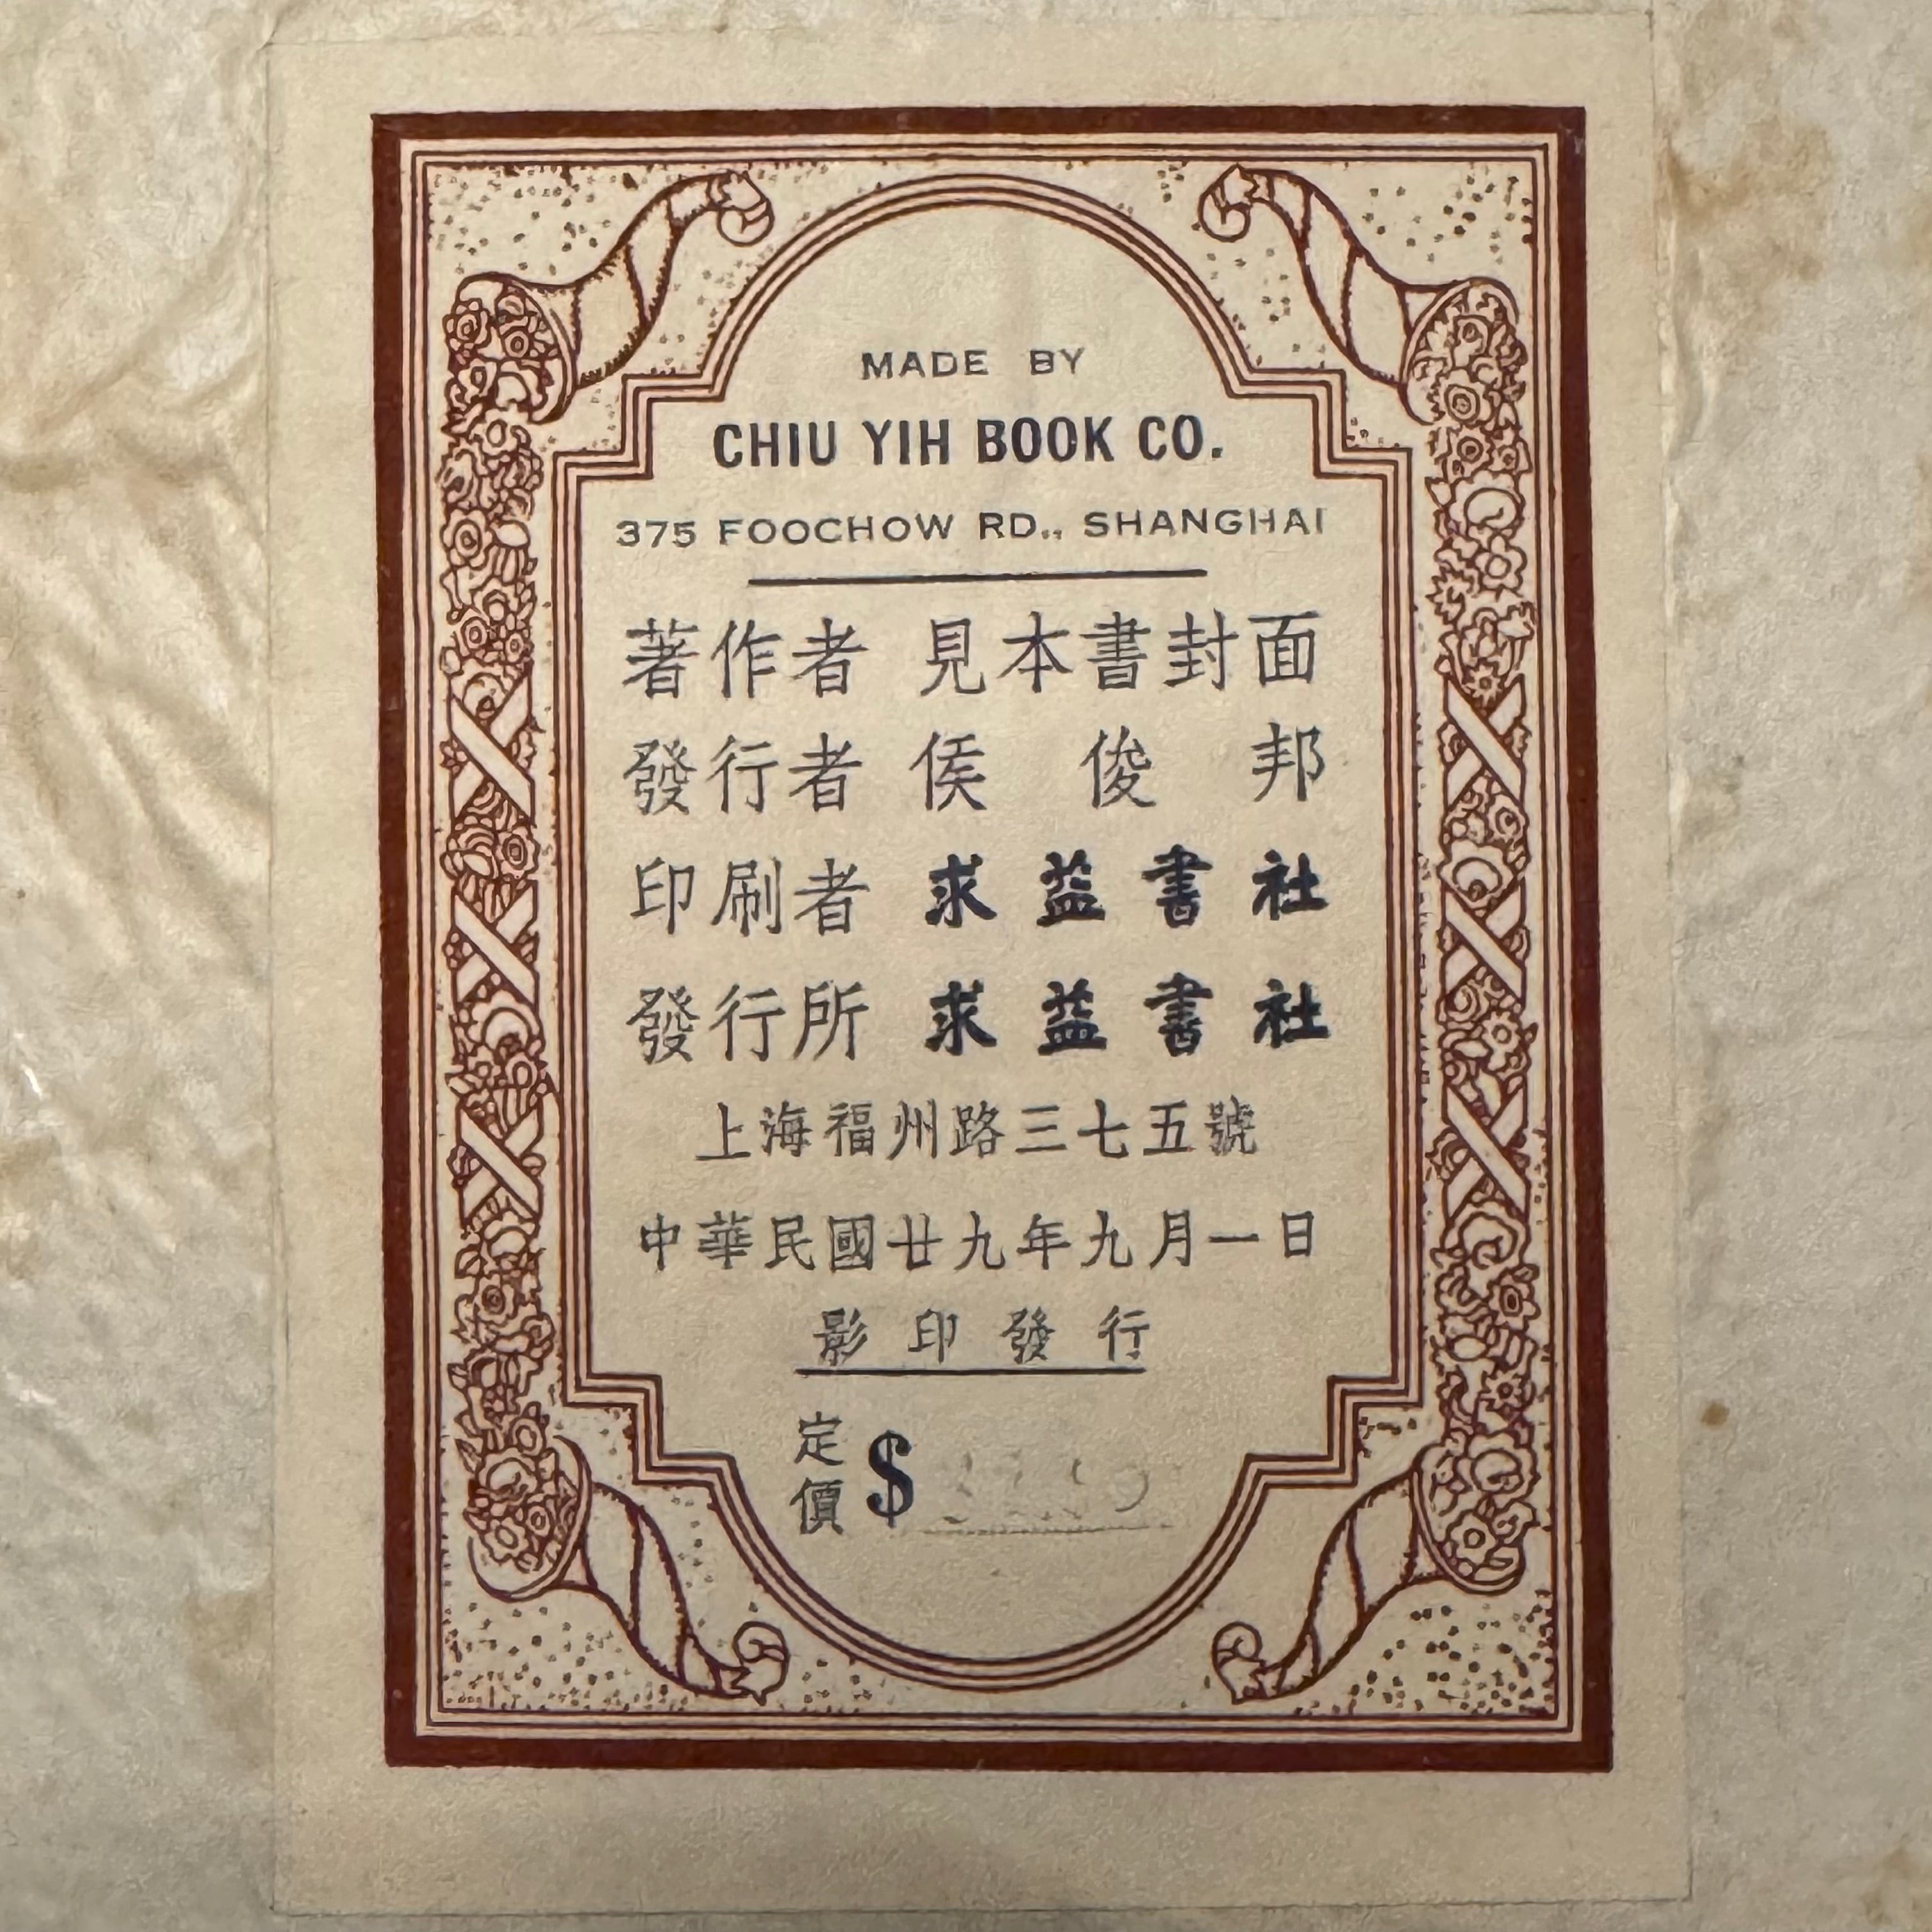 MADE BY
CHIU YIH BOOK CO.
375 FOOCHOW RD., SHANGHAI
著作者 見本書封面
發行者 侯俊邦
印刷者 求益書社
發行所 求益書社
上海福州路三七五號
中華民國廿九年九月一日
影印發行
定價 $